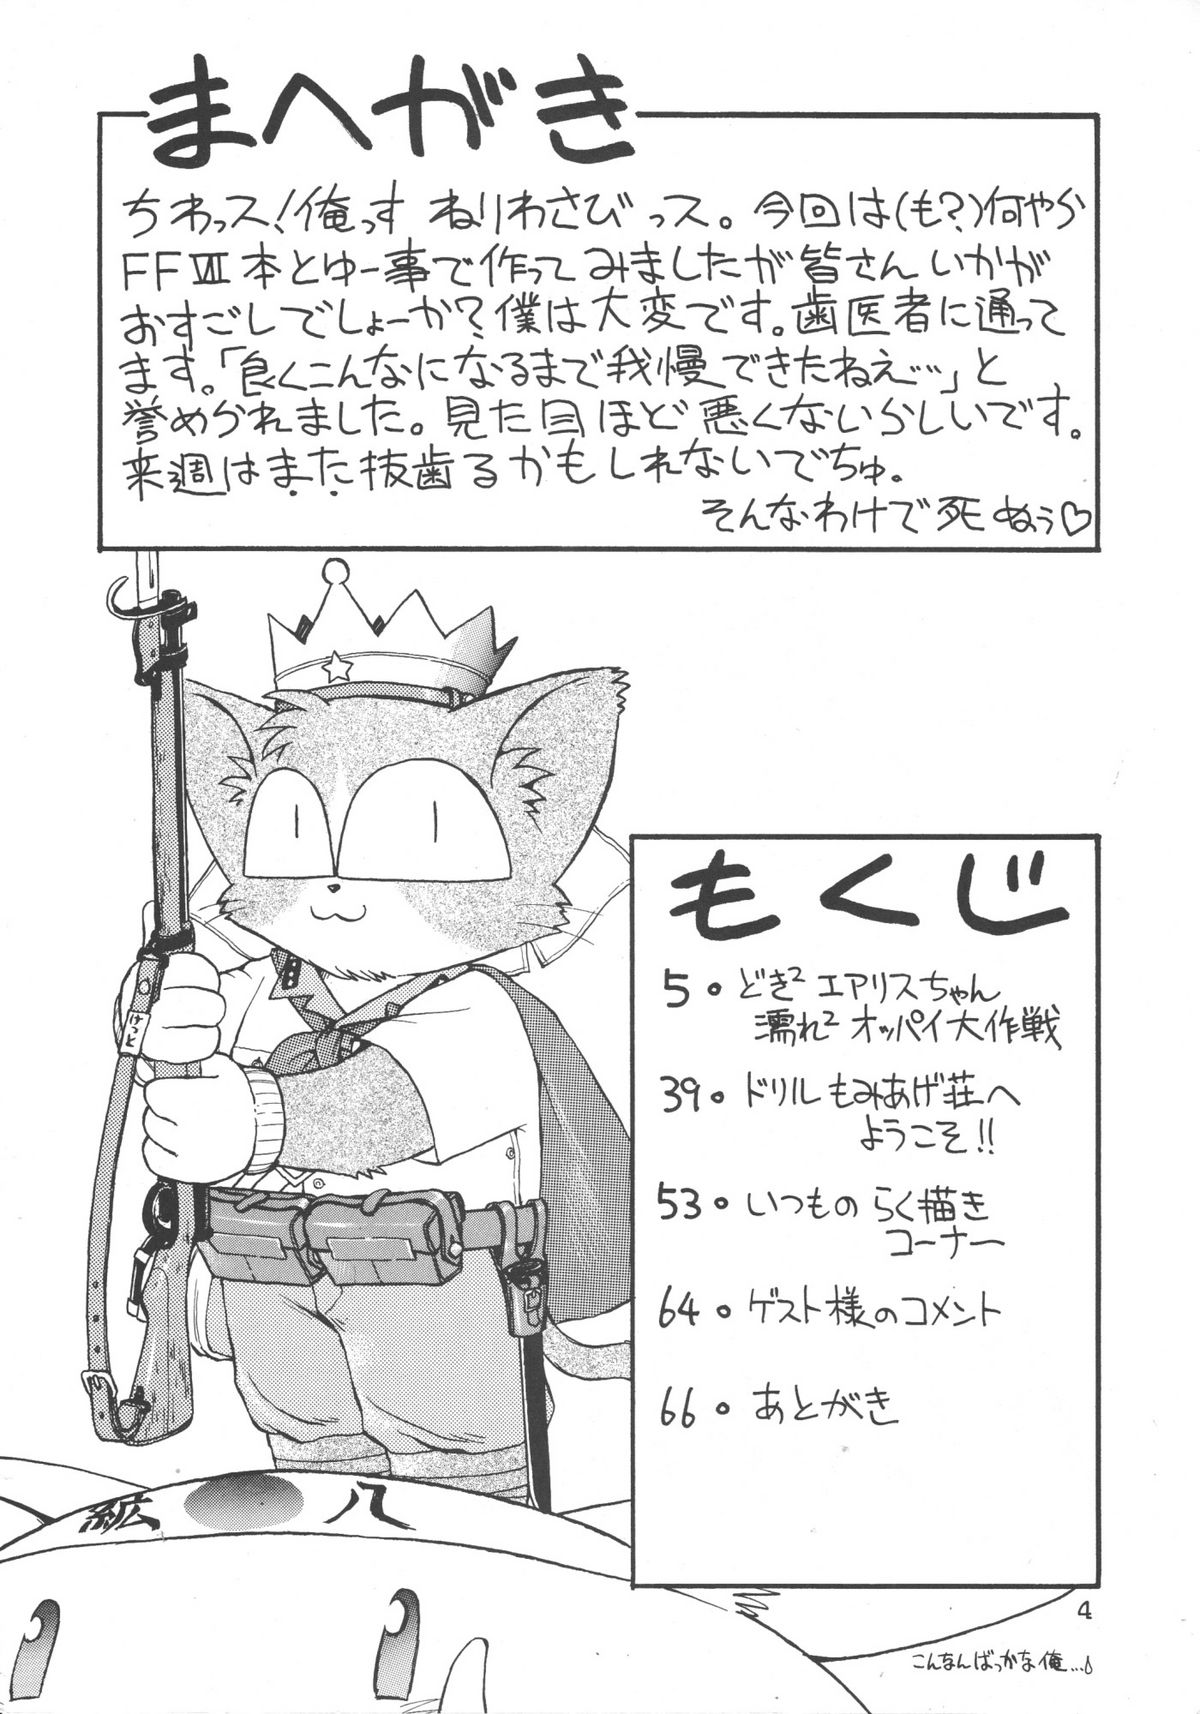 まへがき
ちわっス!俺っす ねりわさびっス。今回は(も?)何やら
FFⅦ本とゆー事で作ってみましたが皆さんいかが
おすごしでしょーか?僕は大変です。歯医者に通って
ます。「良くこんなになるまで我慢できたねえ…」と
誉められました。見た目ほど悪くないらしいです。
来週はまた抜歯るかもしれないでちゅ。
そんなわけで死ぬぅ♡
けっと
もくじ
5・どき² エアリスちゃん
濡れ² オッパイ大作戦
39・ドリルもみあげ荘へ
ようこそ!!
53・いつもの らく描き
コーナー
64・ゲスト様のコメント
66・あとがき
紘 八
4
こんなんばっかな俺…♪